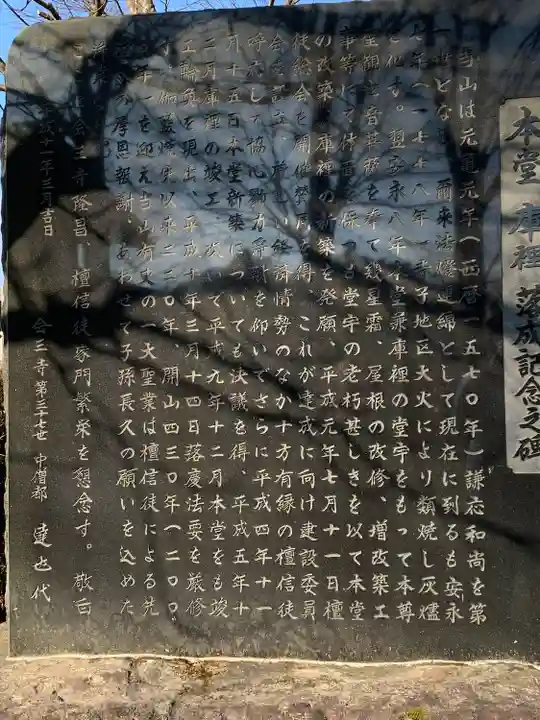 本堂 庫裡 落成記念之碑
当山は元亀元年(西暦一五七〇年)謙応和尚を第
一世となし、爾来法燈連綿として現在に到るも安永
七年(一七七八年)寺子地区大火により類焼し灰燼
と化す。翌安永八年本堂兼庫裡の堂宇をもって本尊
聖観世音菩薩を奉て幾星霜、屋根の改修、増改築工
事等にて体面を保つも堂宇の老朽甚しきを以て本堂
の改築、庫裡の新築を発願、平成元年七月十一日檀
徒総会を開催賛同を得、これが達成に向け建設委員
会を設立、厳しい経済情勢のなか十方有縁の檀信徒
呼応して協心戮力浄財を仰いでさらに平成四年十一
月十五日本堂新築についても決議を得、平成五年十
三月庫裡の竣工、次いで平成九年十二月本堂をも竣
工輪奐を現出、平成十年三月十四日落慶法要を厳修
す。伽藍焼失以来二二〇年、開山四三〇年(二〇〇
〇年)を迎え当山有史の一大聖業は檀信徒による先
祖への厚恩報謝、あわせて子孫長久の願いを込めた
ここに会三寺隆昌、檀信徒家門繁栄を懇念す。 敬白
平成十一年三月吉日
会三寺第三十七世 中僧都 達也代